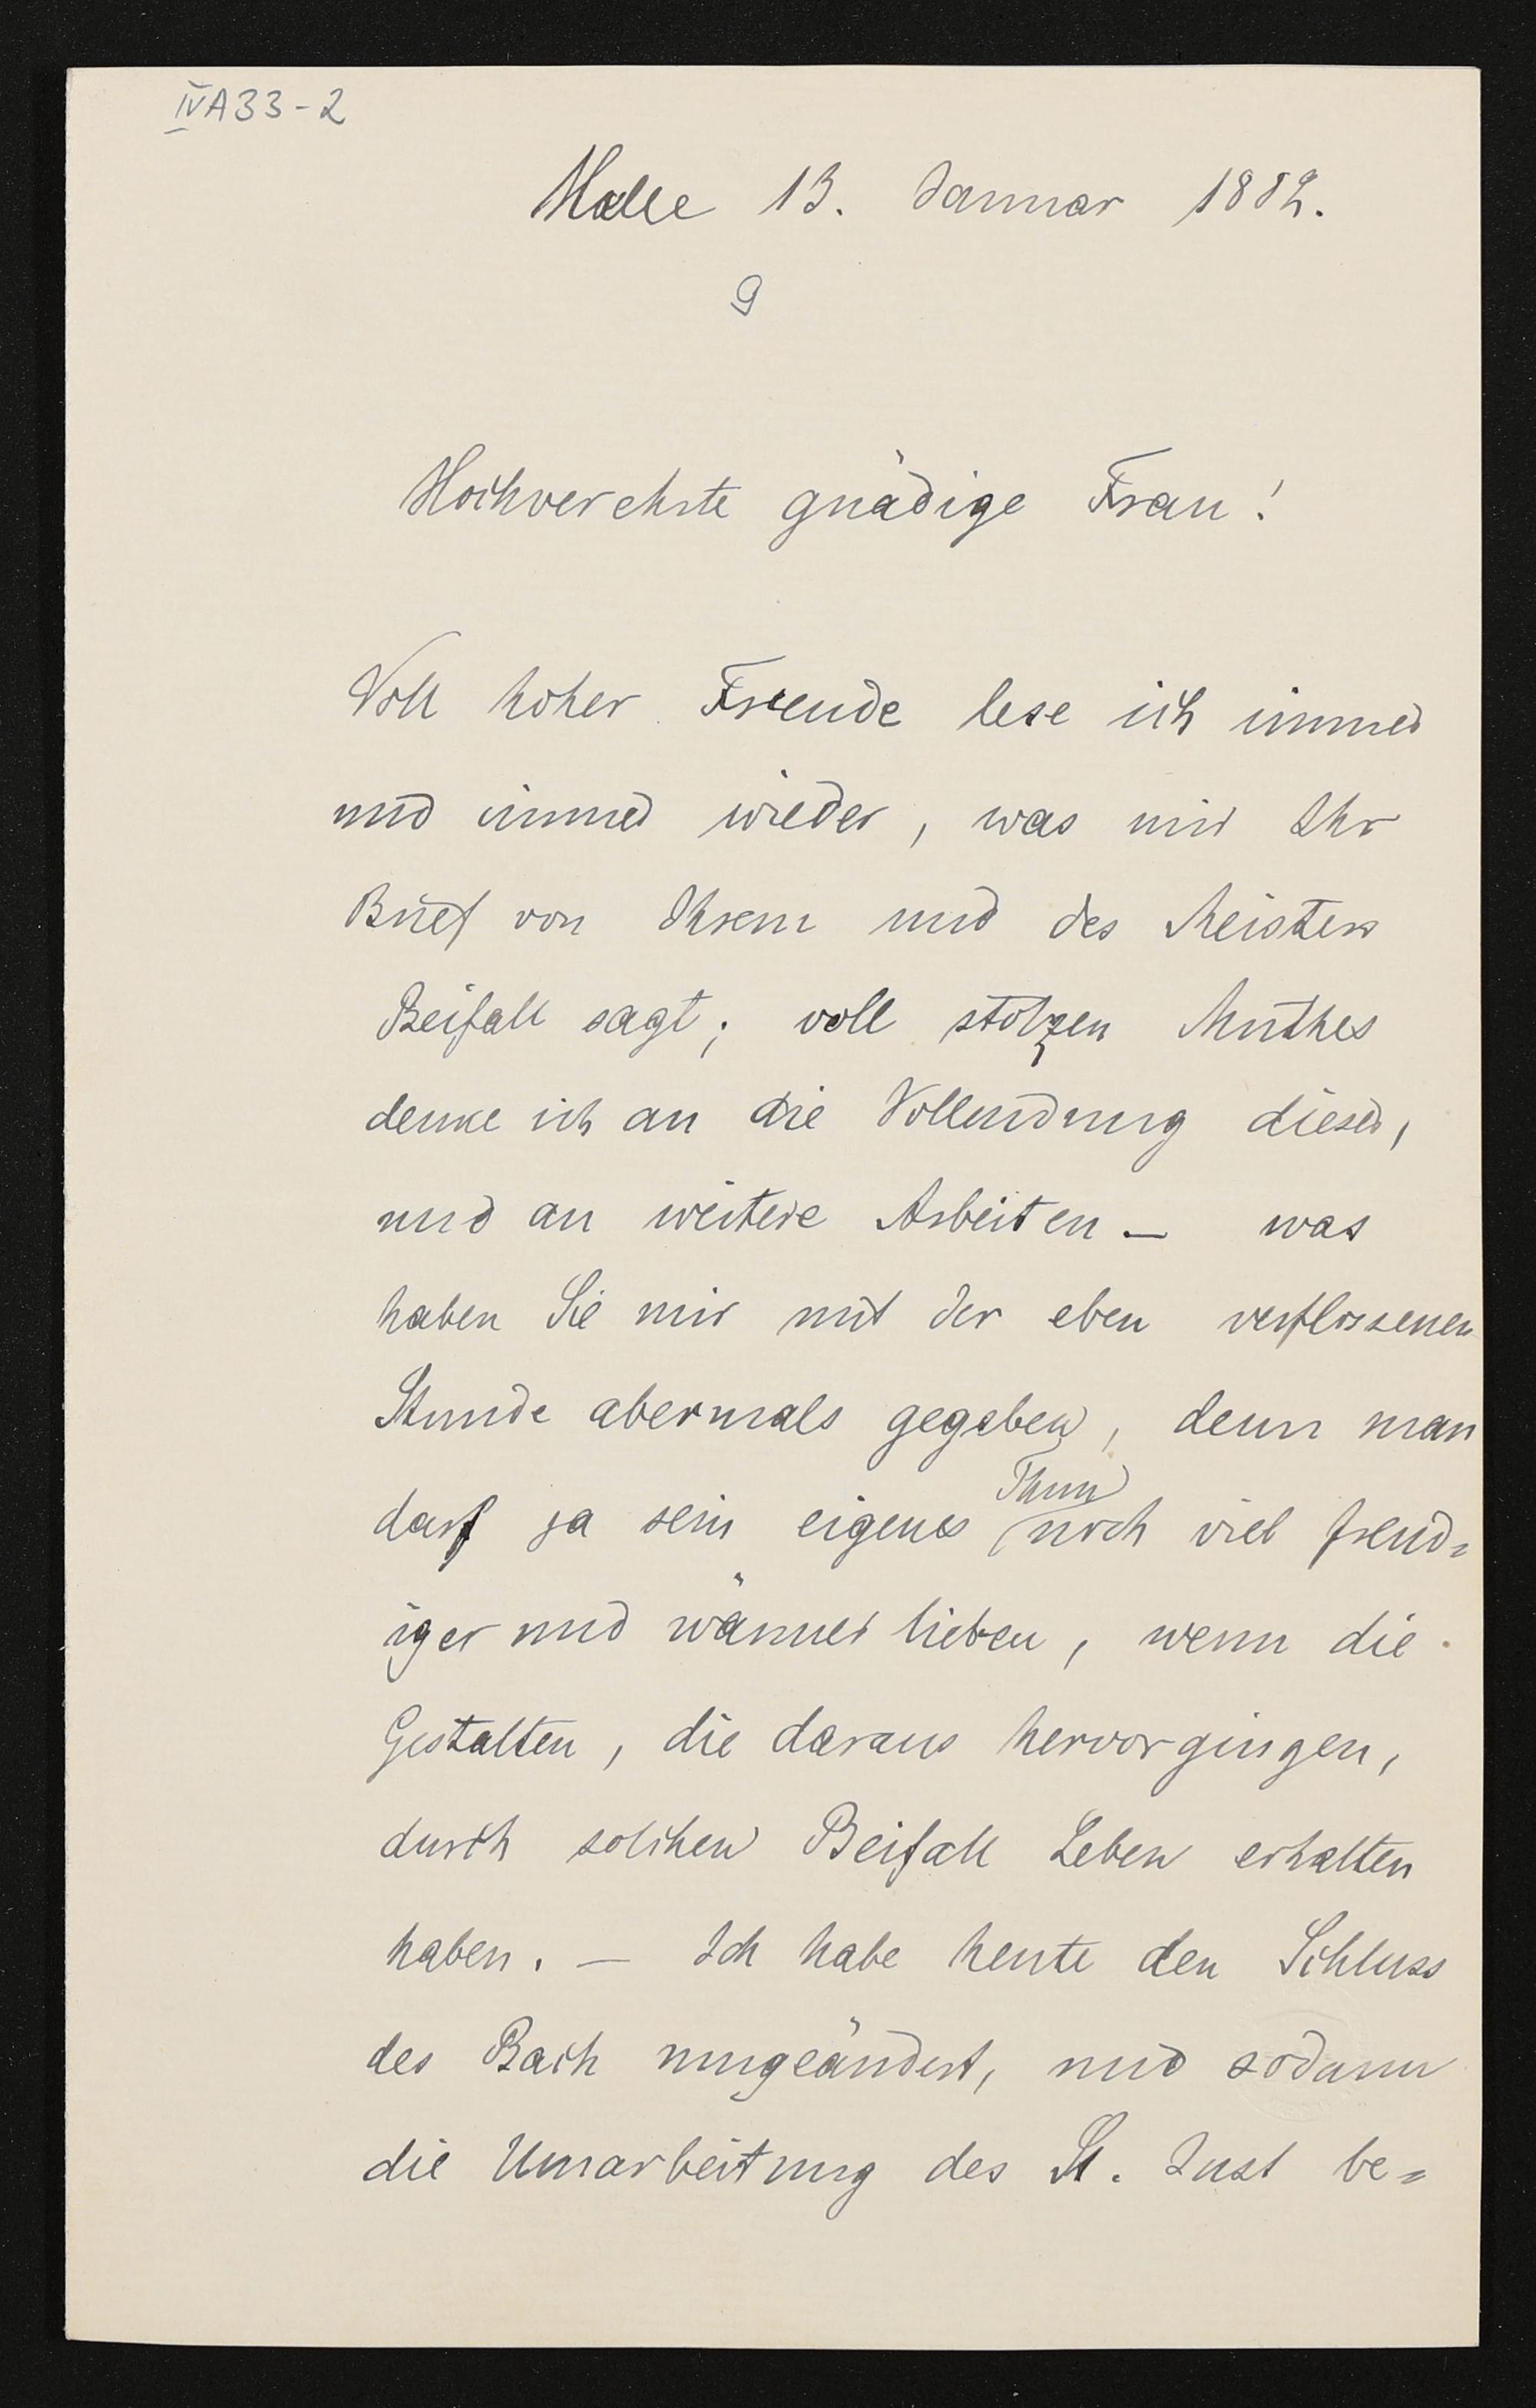 IVA33-2
Halle 13. Januar 1882.
9
Hochverehrte gnädige Frau!
Voll hoher Freude lese ich immer
und immer wieder, was mir Ihr
Brief von Ihrem und des Meisters
Beifall sagt; voll stolzen Muthes
denke ich an die Vollendung dieser,
und an weitere Arbeiten — was
haben Sie mir mit der eben verflossenen
Stunde abermals gegeben, denn man
Thun
darf ja sein eigenes noch viel freud=
iger und wärmer lieben, wenn die
Gestalten, die daraus hervorgingen,
durch solchen Beifall Leben erhalten
haben. — Ich habe heute den Schluss
des Bach umgeändert, und sodann
die Umarbeitung des St. Just be=